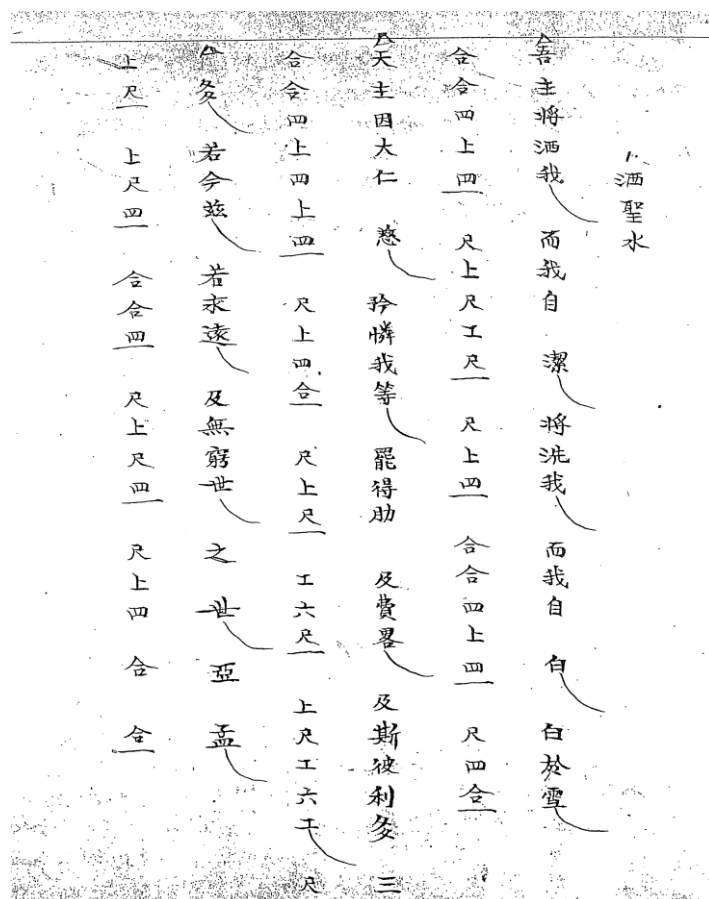 洒聖水
吾主將洒我 而我自 潔 將洗我 而我自 白 白於雪
合合四上四 尺上尺工尺 尺上四 合合四上四 尺四合
天主因大仁 慈 矜憐我等 罷得助 及費畧 及斯彼利多 三
合合四上四上四 尺上四合 尺上尺 工六尺 上尺工六工 尺
多 若今兹 若永遠 及無窮世 之 世 亞 孟
上尺 上尺四 合合四 尺上尺四 尺上四 合 合